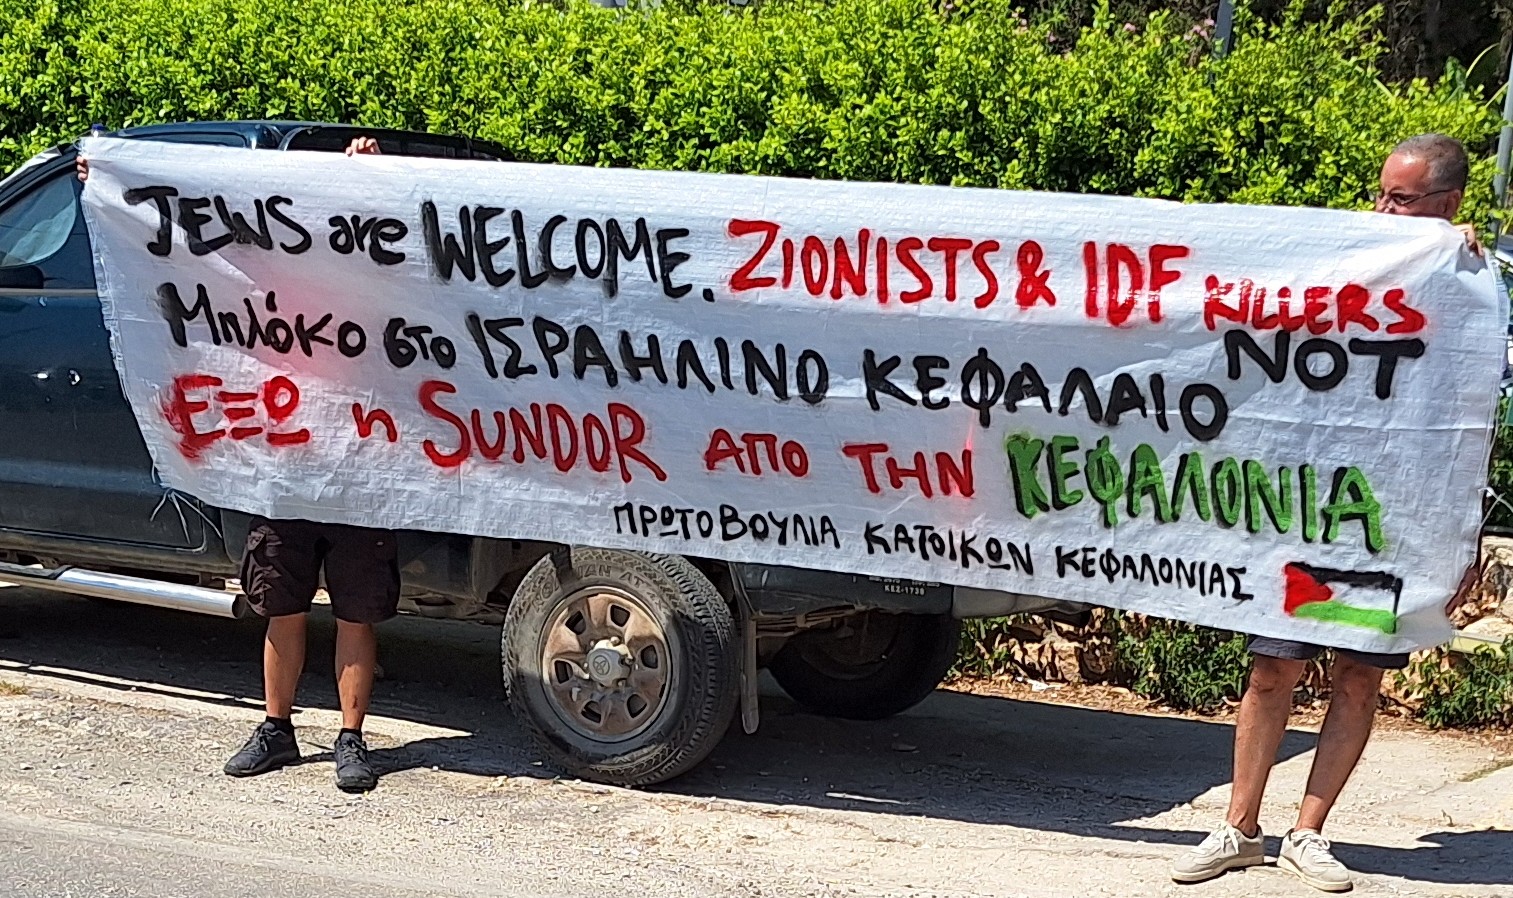 JEWS are WELCOME. ZIONISTS & IDF KILLERS NOT
Μπλόκο στο ΙΣΡΑΗΛΙΝΟ ΚΕΦΑΛΑΙΟ
ΕΞΩ η SUNDOR ΑΠΟ ΤΗΝ ΚΕΦΑΛΟΝΙΑ
ΠΡΩΤΟΒΟΥΛΙΑ ΚΑΤΟΙΚΩΝ ΚΕΦΑΛΟΝΙΑΣ